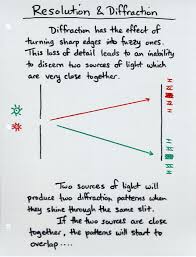 Resolution & Diffraction
Diffraction has the effect of
turning sharp edges into fuzzy ones.
This loss of detail leads to an inability
to discern two sources of light which
are very close together.
Two sources of light will
produce two diffraction patterns when
they shine through the same slit.
If the two sources are close
together, the patterns will start to
overlap....